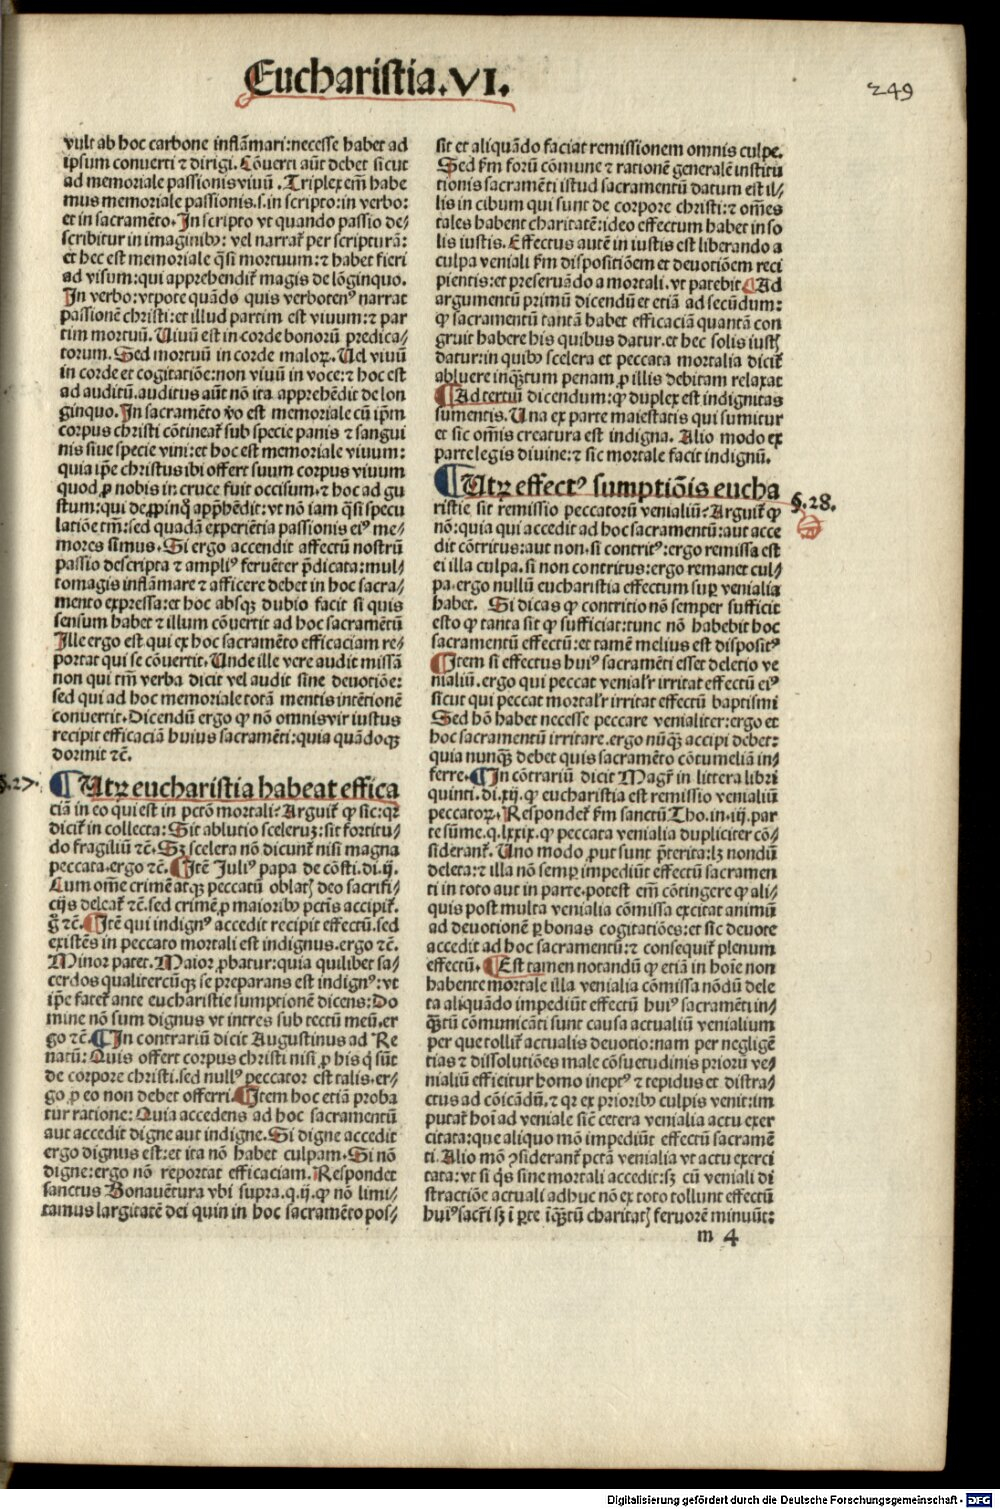 Eucharistia.VI.
249
vult ab hoc carbone inflãmari:necesse habet ad
ipsum conuerti ⁊ dirigi. Cõuerti aũt debet sicut
ad memoriale passionis viuũ. Triplex em̃ habe
mus memoriale passionis.s.in scripto:in verbo:
et in sacramẽto. In scripto vt quando passio de⸗
scribitur in imaginibꝰ: vel narrat̃ per scripturã:
et hec est memoriale q̃si mortuum:⁊ habet fieri
ad visum:qui apprehendit̃ magis de lõginquo.
In verbo:vtpote quãdo quis verbotenꝰ narrat
passionẽ christi:et illud partim est viuum:⁊ par
tim mortuũ. Viuũ est in corde bonorũ predica⸗
torum. Sed mortuũ in corde maloꝝ. Uel viuũ
in corde et cogitatiõe:non viuũ in voce:⁊ hoc est
ad auditũ.auditus aũt nõ ita apprehẽdit de lon
ginquo. In sacramẽto ṽo est memoriale cũ ip̃m
corpus christi cõtineat̃ sub specie panis ⁊ sangui
nis siue specie vini:et hoc est memoriale viuum:
quia ip̃e christus ibi offert suum corpus viuum
quod ꝓ nobis in cruce fuit occisum.⁊ hoc ad gu
stum:qui de ꝓpinq̃ app̃hẽdit:vt nõ iam q̃si specu
latiõe tm̃:sed quadã experiẽtia passionis eiꝰ me⸗
mores simus. Si ergo accendit affectũ nostrũ
passio descripta ⁊ ampliꝰ feruẽter p̃dicata:mul⸗
tomagis inflãmare ⁊ afficere debet in hoc sacra⸗
mento expressa:et hoc absqꝫ dubio facit si quis
sensum habet ⁊ illum cõuertit ad hoc sacramẽtũ
Ille ergo est qui ex hoc sacramẽto efficaciam re⸗
portat qui se cõuertit. Unde ille vere audit missã
non qui tm̃ verba dicit vel audit sine deuotiõe:
sed qui ad hoc memoriale totã mentis intẽtionẽ
conuertit. Dicendũ ergo ꝙ nõ omnis vir iustus
recipit efficaciã huius sacramẽti:quia quãdoqꝫ
dormit ⁊c̃.
§.27.
¶Utꝝ eucharistia habeat effica
ciã in eo qui est in pctõ mortali? Arguit̃ ꝙ sic:qꝛ
dicit̃ in collecta: Sit ablutio sceleruꝫ:sit fortitu⸗
do fragiliũ ⁊c̃. Sꝫ scelera nõ dicunt̃ nisi magna
peccata.ergo ⁊c̃. ¶Itẽ Juliꝰ papa de cõsti.di.ij.
Cum om̃e crimẽ atqꝫ peccatũ oblatꝭ deo sacrifi⸗
cijs deleat̃ ⁊c̃.sed crimẽ ꝓ maioribꝰ pctĩs accipit̃.
g̃ ⁊c̃. ¶Itẽ qui indignꝰ accedit recipit effectũ.sed
existẽs in peccato mortali est indignus.ergo ⁊c̃.
Minor patet. Maior ꝓbatur:quia quilibet sa⸗
cerdos qualitercũqꝫ se preparans est indignꝰ:vt
ip̃e fatet̃ ante eucharistie sumptionẽ dicens:Do
mine nõ sum dignus vt intres sub tectũ meũ.er
go ⁊c̃. ¶In contrariũ dicit Augustinus ad Re
natũ: Quis offert corpus christi nisi ꝓ his q̃ sũt
de corpore christi.sed nullꝰ peccator est talis.er⸗
go ꝓ eo non debet offerri. ¶Item hoc etiã proba
tur ratione: Quia accedens ad hoc sacramentũ
aut accedit digne aut indigne. Si digne accedit
ergo dignus est:et ita nõ habet culpam. Si nõ
digne:ergo nõ reportat efficaciam. Respondet
sanctus Bonauẽtura vbi supra.q.ij.ꝙ nõ limi⸗
tamus largitatẽ dei quin in hoc sacramẽto pos⸗
sit et aliquãdo faciat remissionem omnis culpe.
Sed fm̃ forũ cõmune ⁊ rationẽ generalẽ institu
tionis sacramẽti istud sacramentũ datum est il⸗
lis in cibum qui sunt de corpore christi:⁊ om̃es
tales habent charitatẽ:ideo effectum habet in so
lis iustis. Effectus autẽ in iustis est liberando a
culpa veniali fm̃ dispositiõem et deuotiõem reci
pientis:et preseruãdo a mortali.vt patebit. ¶Ad
argumentũ primũ dicendũ et etiã ad secũdum:
ꝙ sacramentũ tantã habet efficaciã quantã con
gruit habere his quibus datur.et hec solis iustꝭ
datur:in quibꝰ scelera et peccata mortalia dicit̃
abluere inq̃tum penam ꝓ illis debitam relaxat
¶Ad tertiũ dicendum:ꝙ duplex est indignitas
sumentis. Una ex parte maiestatis qui sumitur
et sic om̃is creatura est indigna. Alio modo ex
parte legis diuine:⁊ sic mortale facit indignũ.
¶Utꝝ effectꝰ sumptiõis eucha
§.28.
ristie sit remissio peccatorũ venialiũ? Arguit̃ ꝙ
nõ:quia qui accedit ad hoc sacramentũ:aut acce
dit cõtritus:aut non.si contritꝰ:ergo remissa est
ei illa culpa.si non contritus:ergo remanet cul⸗
pa.ergo nullũ eucharistia effectum suꝑ venialia
habet. Si dicas ꝙ contritio nõ semper sufficit
esto ꝙ tanta sit ꝙ sufficiat:tunc nõ habebit hoc
sacramentũ effectũ:et tamẽ melius est dispositꝰ
¶Item si effectus huiꝰ sacramẽti esset deletio ve
nialiũ.ergo qui peccat venialr̃ irritat effectũ eiꝰ
sicut qui peccat mortalr̃ irritat effectũ baptismi
Sed hõ habet necesse peccare venialiter:ergo et
hoc sacramentũ irritare.ergo nũqꝫ accipi debet:
quia nunqꝫ debet quis sacramẽto cõtumeliã in⸗
ferre. ¶In cõtrariũ dicit Magr̃ in littera libri
quinti.di.xij.ꝙ eucharistia est remissio venialiũ
peccatoꝝ. Respondet̃ fm̃ sanctũ Tho.in.iij.par
te sũme.q.lxxix.ꝙ peccata venialia dupliciter cõ⸗
siderant̃. Uno modo ꝓut sunt p̃terita:lꝫ nondũ
deleta:⁊ illa nõ semꝑ impediũt effectũ sacramen
ti in toto aut in parte.potest em̃ cõtingere ꝙ ali⸗
quis post multa venialia cõmissa excitat animũ
ad deuotionẽ ꝑ bonas cogitatiões:et sic deuote
accedit ad hoc sacramentũ:⁊ consequit̃ plenum
effectũ. ¶Est tamen notandũ ꝙ etiã in hoĩe non
habente mortale illa venialia cõmissa nõdũ dele
ta aliquãdo impediũt effectũ huiꝰ sacramẽti in⸗
q̃ꝫtũ cõmunicãti sunt causa actualiũ venialium
per que tollit̃ actualis deuotio:nam per negligẽ
tias ⁊ dissolutiões male cõsuetudinis priorũ ve⸗
nialiũ efficitur homo ineptꝰ ⁊ tepidus et distra⸗
ctus ad cõicãdũ.⁊ qꝛ ex prioribꝰ culpis venit:im
putat̃ hoĩ ad veniale sic̃ cetera venialia actu exer
citata:que aliquo mõ impediũt effectũ sacramẽ
ti. Alio mõ ꝯsiderant̃ pctã venialia vt actu exerci
tata:vt si q̃s sine mortali accedit:sꝫ cũ veniali di
stractiõe actuali adhuc nõ ex toto tollunt effectũ
huiꝰ sacr̃i sꝫ ĩ ꝑte ĩq̃ꝫtũ charitatꝭ feruorẽ minuũt:
m 4
Digitalisierung gefördert durch die Deutsche Forschungsgemeinschaft - DFG